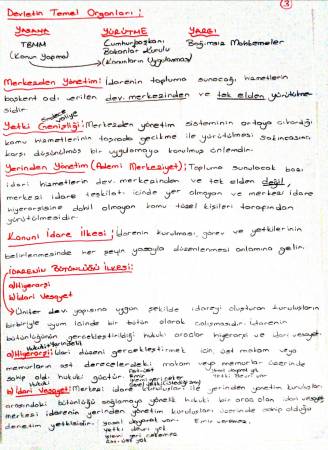 ③
Devletin Temel Organları:
YASAMA YÜRÜTME YARGI
TBMM Cumhurbaşkanı Bağımsız Mahkemeler
(Kanun Yapma) Bakanlar Kurulu
(Kanunların Uygulanması)
Merkezden Yönetim: İdarenin topluma sunacağı hizmetlerin
başkent adı verilen dev. merkezinden ve tek elden yürütülme-
sidir.
Yetki Genişliği: Merkezden yönetim sisteminin ortaya çıkardığı
kamu hizmetlerinin taşrada gecikme ile yürütülmesi sakıncasına
karşı düşünülmüş bir uygulamaya konulmuş önlemdir.
Yerinden Yönetim (Ademi Merkeziyet): Topluma sunulacak bazı
idari hizmetlerin dev. merkezinden ve tek elden değil,
merkezi idare teşkilatı içinde yer almayan ve merkezi idare
hiyerarşisine dahil olmayan kamu tüzel kişileri tarafından
yürütülmesidir.
Kanuni İdare İlkesi: İdarenin kurulması, görev ve yetkilerinin
belirlenmesinde her şeyin yasayla düzenlenmesi anlamına gelir.
İDARENİN BÜTÜNLÜĞÜ İLKESİ:
a) Hiyerarşi
b) İdari Vesayet
→ Üniter dev. yapısına uygun şekilde idareyi oluşturan kuruluşların
birbiriyle uyum içinde bir bütün olarak çalışmasıdır. İdarenin
bütünlüğünün gerçekleştirildiği hukuki araçlar hiyerarşi ve vesayettir.
a) Hiyerarşi: İdari düzeni gerçekleştirmek için, üst makam veya
memurların ast derecelerdeki makam veya memurlar üzerinde
sahip old. hukuki güçtür.
b) İdari Vesayet: Merkezi idare kuruluşları ile yerinden yönetim kuruluşları
arasındaki bütünlüğü sağlamaya yönelik hukuki bir araç olan idari vesayet
merkezi idarenin yerinden yönetim kuruluşları üzerinde sahip olduğu
denetim yetkisidir. Emir veremez.
yetki devri yok